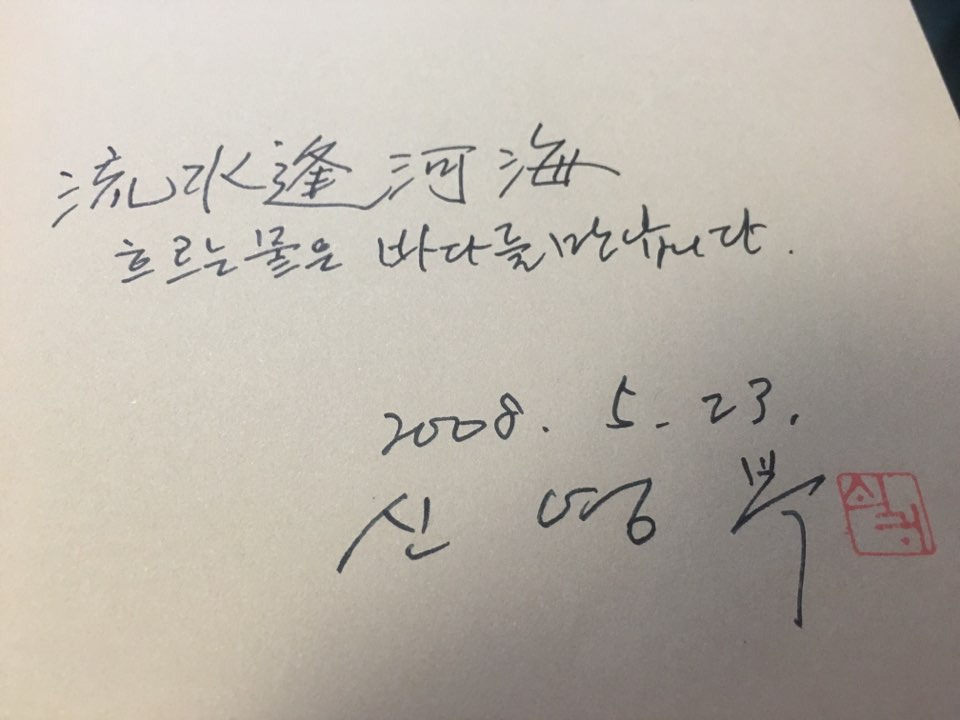 流水逢河海
흐르는 물은 바다를 만납니다.
2008. 5. 23.
신 영 복
쇠귀